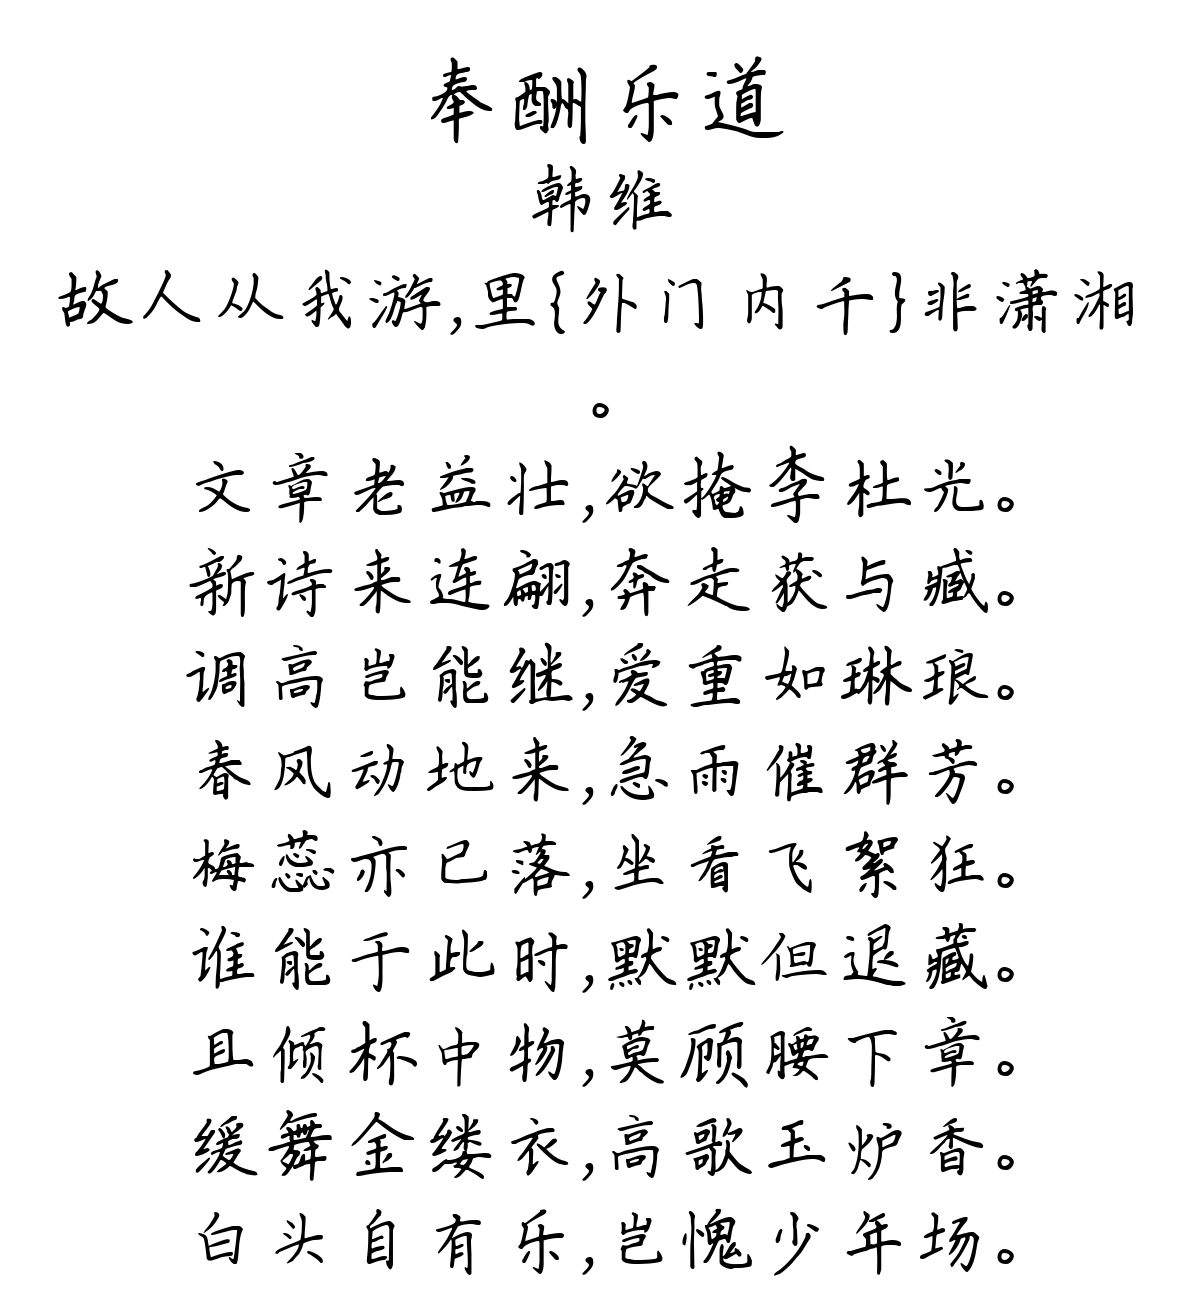 奉酬乐道
韩维
故人从我游,里{外门内千}非潇湘
。
文章老益壮,欲掩李杜光。
新诗来连翩,奔走获与臧。
调高岂能继,爱重如琳琅。
春风动地来,急雨催群芳。
梅蕊亦已落,坐看飞絮狂。
谁能于此时,默默但退藏。
且倾杯中物,莫顾腰下章。
缓舞金缕衣,高歌玉炉香。
白头自有乐,岂愧少年场。